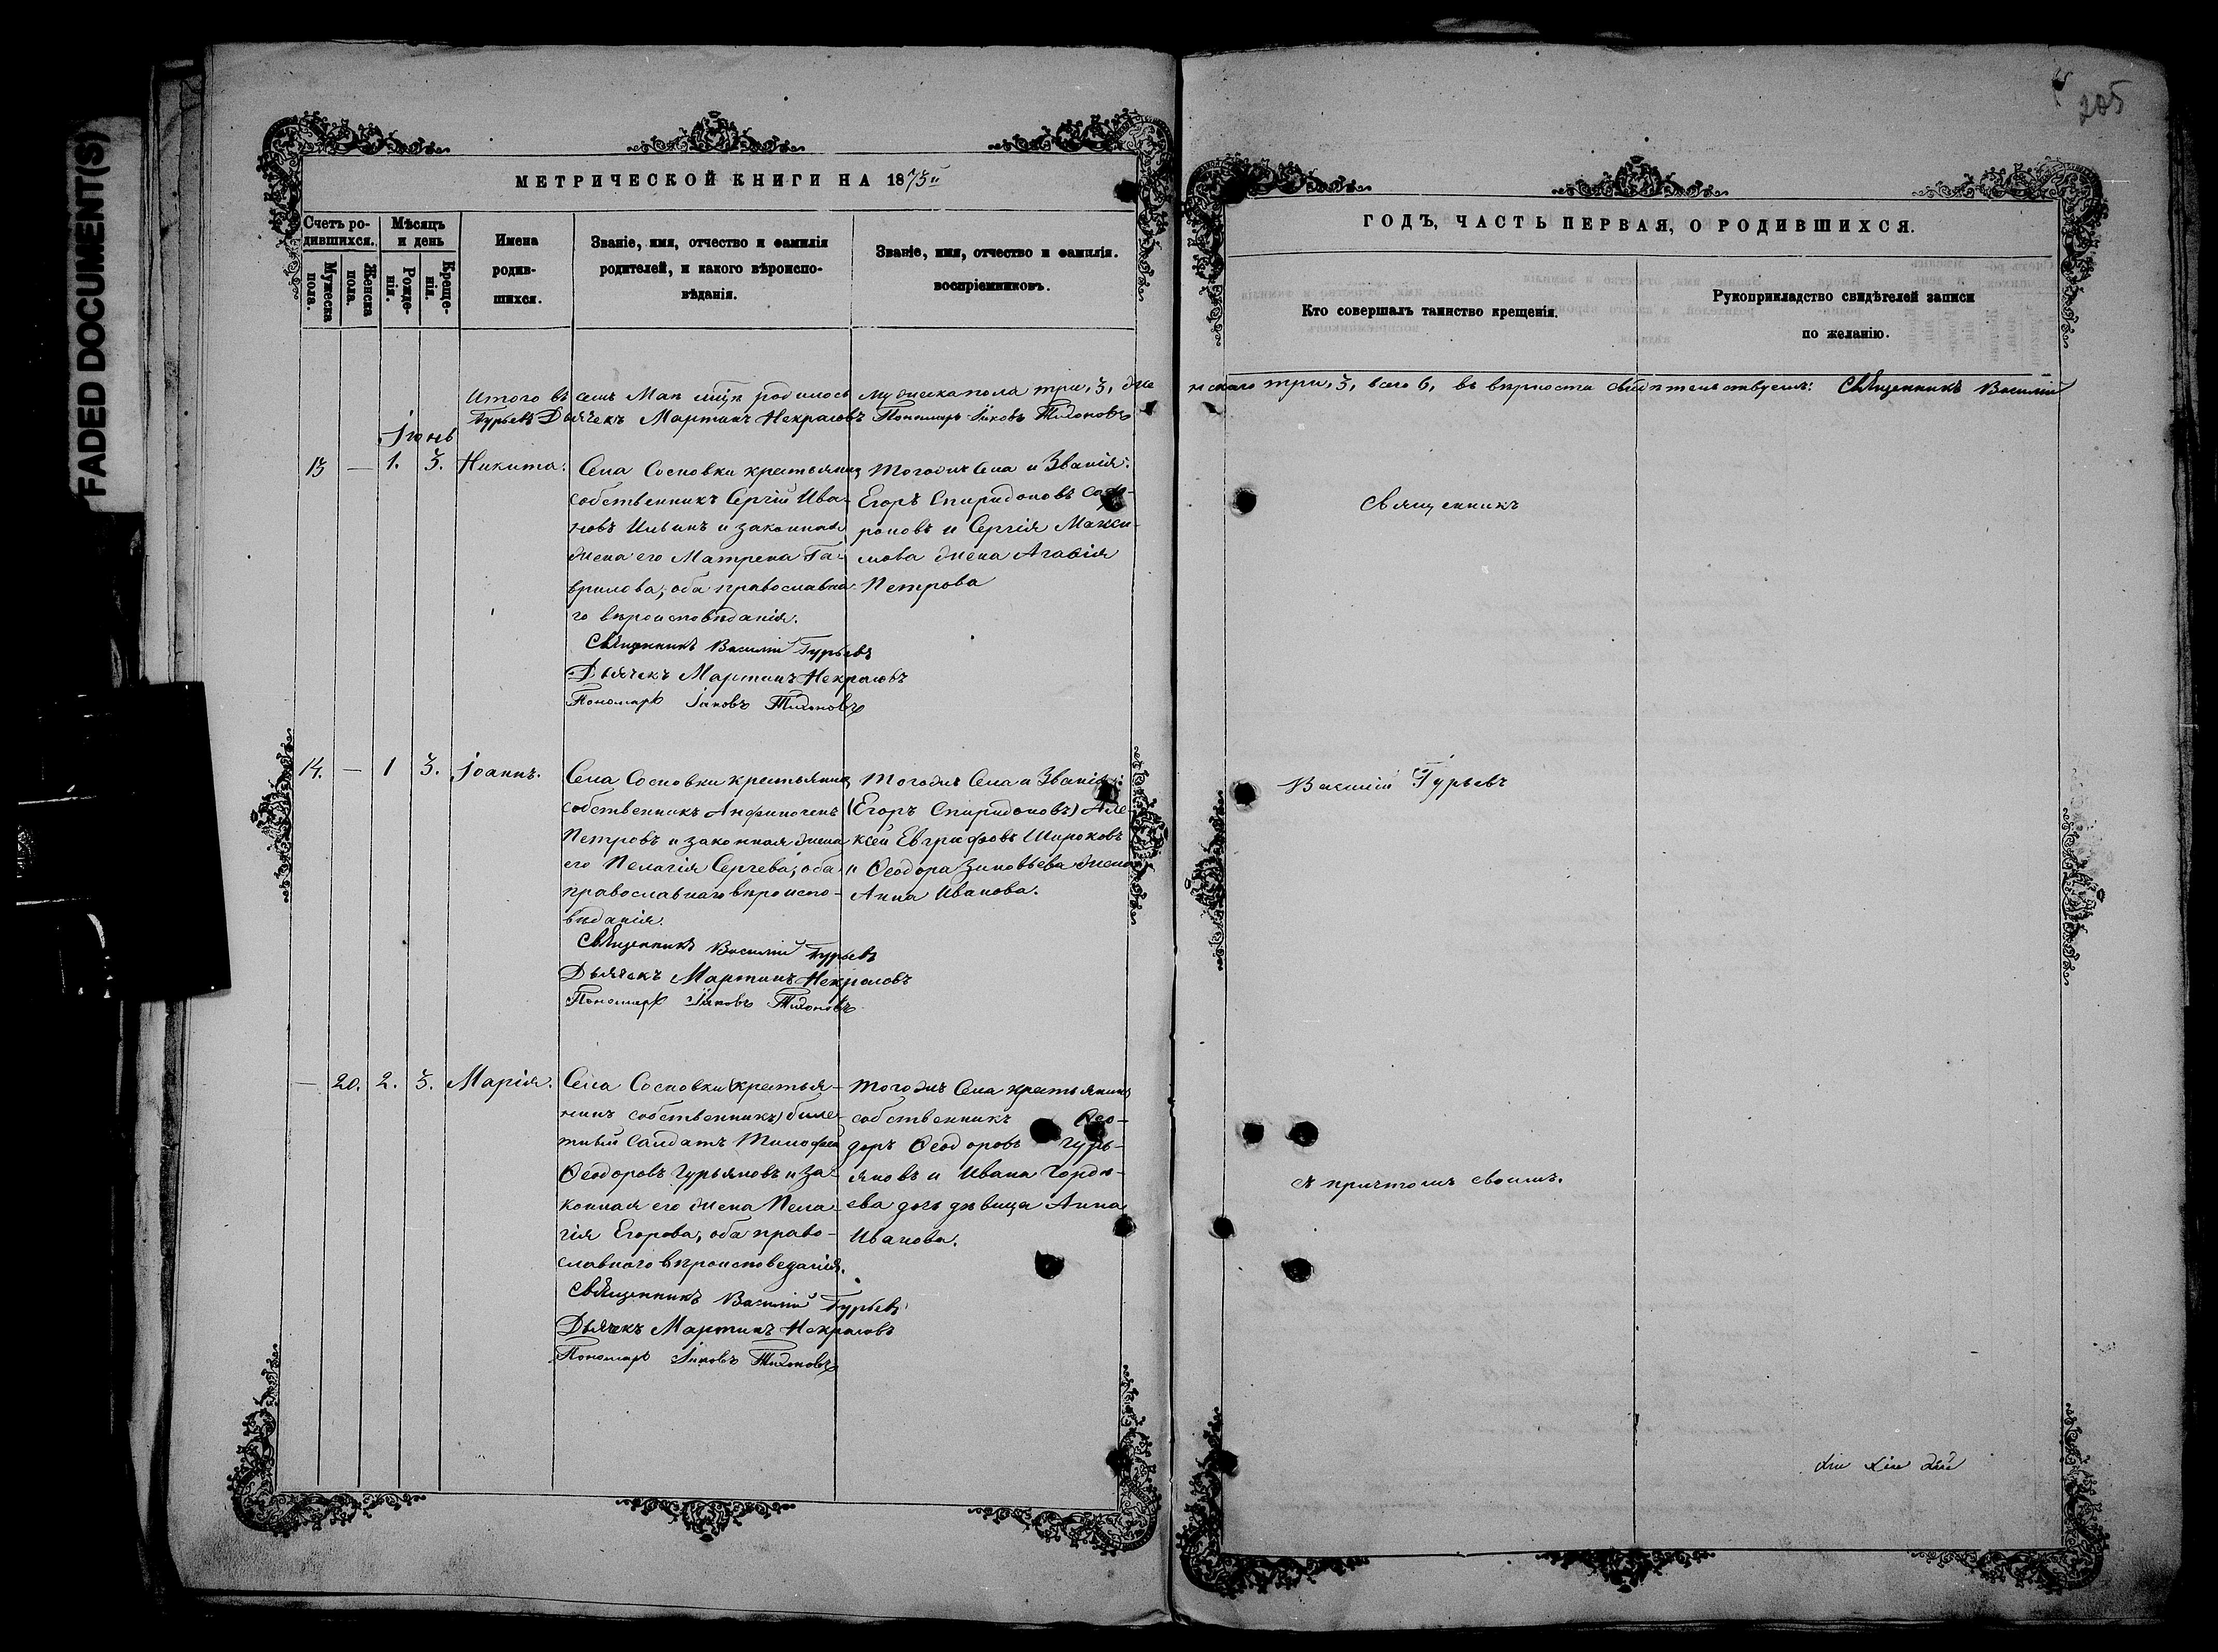 FADED DOCUMENT(S)
205
МЕТРИЧЕСКОЙ КНИГИ НА 1875й
ГОДЪ, ЧАСТЬ ПЕРВАЯ, О РОДИВШИХСЯ.
Счетъ ро-
дившихся.
Мужеска
пола.
Женска
пола.
Мѣсяцъ
и день
Рожде-
нія.
Креще-
нія.
Имена
родив-
шихся.
Званіе, имя, отчество и фамилія
родителей, и какого вѣроиспо-
вѣданія.
Званіе, имя, отчество и фамилія.
воспріемниковъ.
Кто совершалъ таинство крещенія.
Рукоприкладство свидѣтелей записи
по желанію.
Итого въ семъ Маѣ родилось мужеска пола три, 3, же
нскаго три, 3, всего 6, въ вѣрности свидѣтельствуемъ: Священникъ Василій
Гурьевъ Дьячекъ Мартинъ Некрасовъ Пономарь Іаковъ Тихоновъ
Іюнь
13 — 1. 3. Никита.
Села Сосновки крестьянинъ
собственникъ Сергій Ива-
новъ Ильинъ и законная
жена его Матрена Га-
врилова, оба православна
го вѣроисповѣданія.
Священникъ Василій Гурьевъ
Дьячекъ Мартинъ Некрасовъ
Пономарь Іаковъ Тихоновъ
Тогожъ Села и Званія:
Егоръ Спиридоновъ Соф-
роновъ и Сергія Макси-
мова жена Агафія
Петрова
Священникъ
14. — 1 3. Іоаннъ.
Села Сосновки крестьянинъ
собственникъ Анфиногенъ
Петровъ и законная жена
его Пелагія Сергева; оба
православнаго вѣроиспо-
вѣданія.
Священникъ Василій Гурьевъ
Дьячекъ Мартинъ Некрасовъ
Пономарь Іаковъ Тихоновъ
Тогожъ Села и Званія:
(Егоръ Спиридоновъ) Але-
ксѣй Евграфовъ Широковъ
и Ѳеодора Зиновьева жена
Анна Иванова.
Василій Гурьевъ
— 20. 2. 3. Марія.
Села Сосновки (крестья-
нинъ собственникъ) биле-
тный Салдатъ Тимофей
Ѳеодоровъ Гурьяновъ и за-
конная его жена Пела-
гія Егорова, оба право-
славнаго вѣроисповеданія.
Священникъ Василій Гурьевъ
Дьячекъ Мартинъ Некрасовъ
Пономарь Іаковъ Тихоновъ
Тогожъ Села крестьянинъ
собственникъ Ѳео-
доръ Ѳеодоровъ Гурь-
яновъ и Ивана Горде-
ева дочь дѣвица Анна
Иванова.
съ причтомъ своимъ.